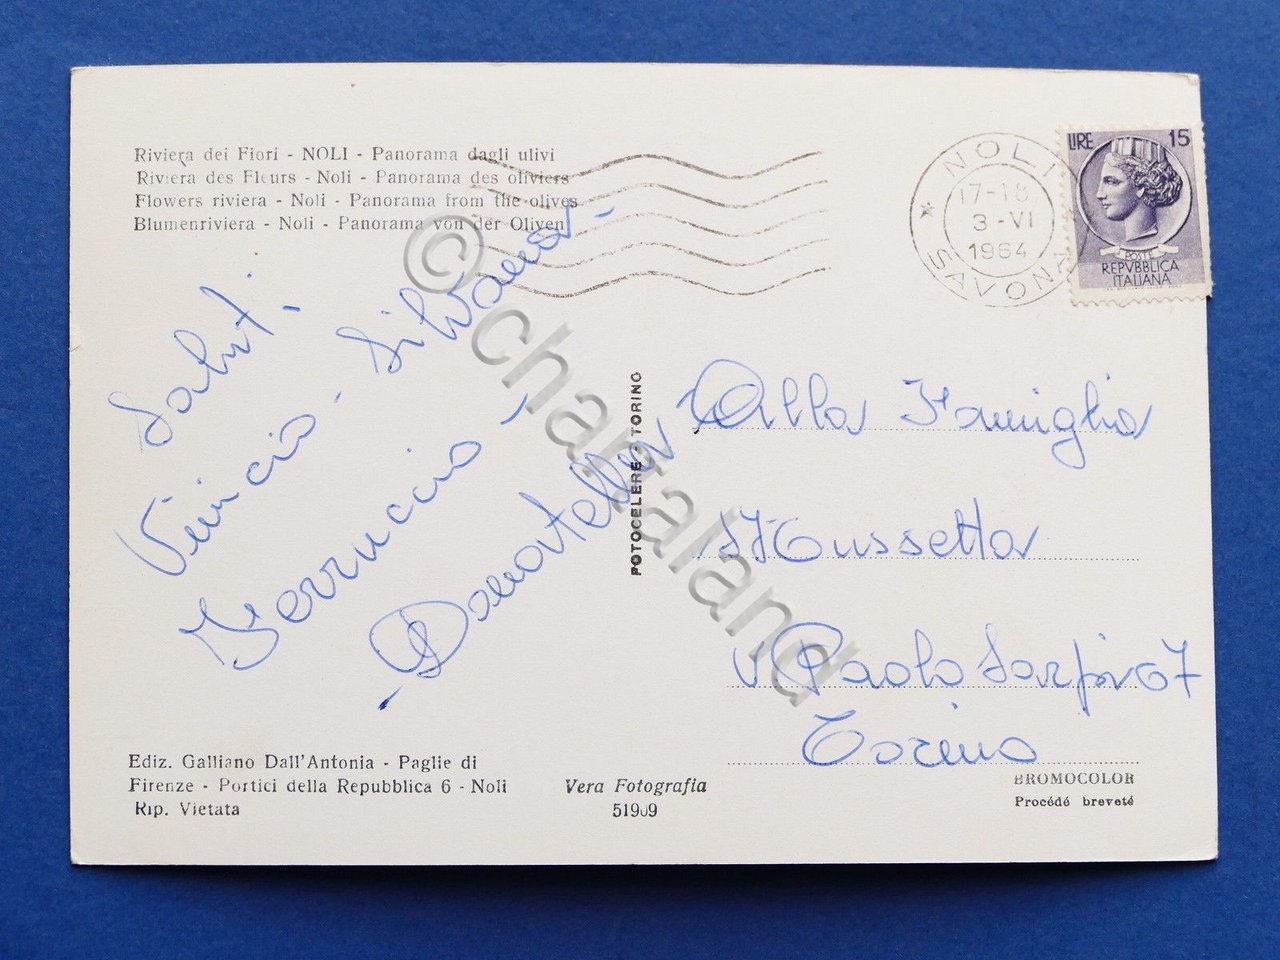 Riviera dei Fiori - NOLI - Panorama dagli ulivi
Riviera des Fleurs - Noli - Panorama des oliviers
Flowers riviera - Noli - Panorama from the olives
Blumenriviera - Noli - Panorama von der Oliven
NOLI
17-18
3-VI
1964
* SAVONA
LIRE 15
POSTE
REPVBBLICA
ITALIANA
Saluti
Vinicio - Silvana -
Ferruccio -
- Donatella
FOTOCELERE - TORINO
Alla Famiglia
Mussetta
v Paolo Sarpi 67
Torino
Ediz. Galliano Dall'Antonia - Paglie di
Firenze - Portici della Repubblica 6 - Noli
Rip. Vietata
Vera Fotografia
51909
BROMOCOLOR
Procédé breveté
© chartaland